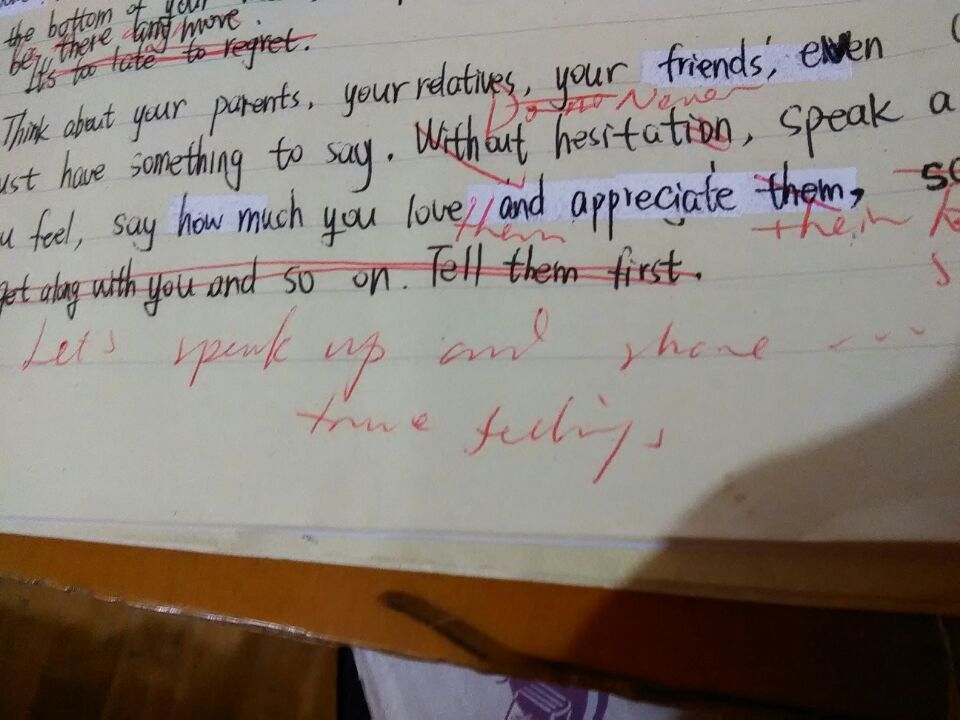 the bottom of your
be there any more.
It's too late to regret.
Think about your parents, your relatives, your friends, even
ust have something to say. Without hesitation, speak a
Never
u feel, say how much you love and appreciate them, so
them
them
get along with you and so on. Tell them first.
Let's speak up and share ...
true feelings